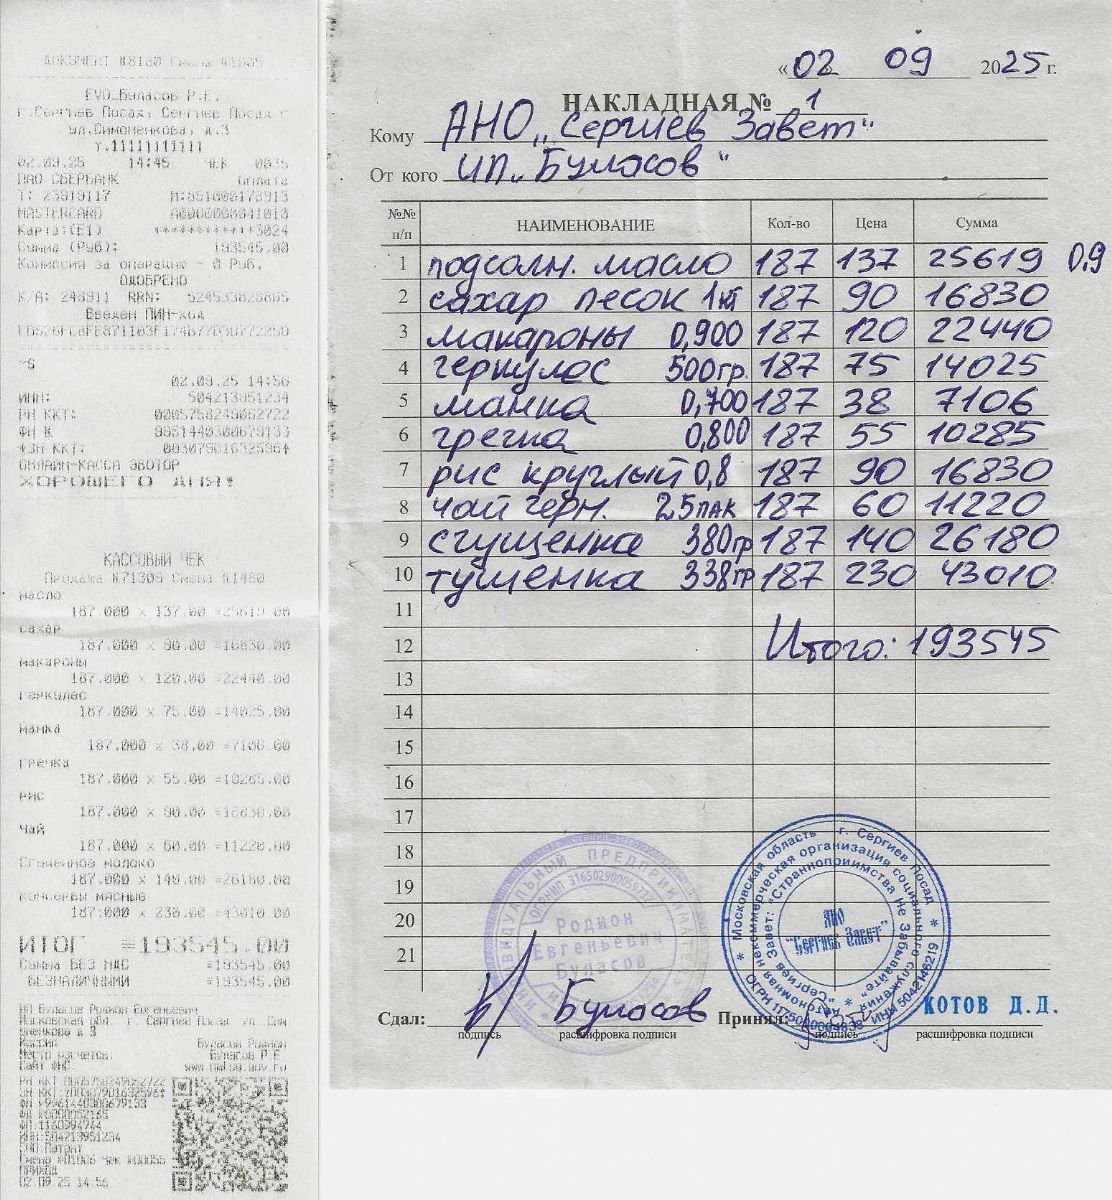 ДОКУМЕНТ №8180 Смена №1005
EVO_Буласов Р.Е.
г.Сергиев Посад, Сергиев Посад г
ул.Симоненкова, д.3
т.11111111111
02.09.25 14:45 ЧЕК 0035
ПАО СБЕРБАНК Оплата
MASTERCARD A0000000041010
Карта:(E1) ************3024
Сумма (Руб): 193545.00
Комиссия за операцию - 0 Руб.
ОДОБРЕНО
К/А: 248911 RRN:
Введен ПИН-код
02.09.25 14:56
ИНН: 504213951234
РН ККТ:
ФН №
ФЗН ККТ:
ОНЛАЙН-КАССА ЭВОТОР
ХОРОШЕГО ДНЯ!
КАССОВЫЙ ЧЕК
Продажа №71309 Смена №1460
масло
187.000 x 137.00 =25619.00
сахар
187.000 x 90.00 =16830.00
макароны
187.000 x 120.00 =22440.00
геркулес
187.000 x 75.00 =14025.00
манка
187.000 x 38.00 =7106.00
гречка
187.000 x 55.00 =10285.00
рис
187.000 x 90.00 =16830.00
чай
187.000 x 60.00 =11220.00
Сгущенное молоко
187.000 x 140.00 =26180.00
консервы мясные
187.000 x 230.00 =43010.00
ИТОГ =193545.00
Сумма БЕЗ НДС =193545.00
БЕЗНАЛИЧНЫМИ =193545.00
ИП Буласов Родион Евгеньевич
Московская обл, г Сергиев Посад, ул. Сим
оненкова д 3
Кассир Буласов Родион
Место расчетов: Буласов Р.Е
Сайт ФНС: www.nalog.gov.ru
ИНН:504213951234
СНО:Патент
Смена №01006 Чек №00055
ПРИХОД
02.09.25 14:56
«02 09 2025 г.
НАКЛАДНАЯ № 1
Кому АНО „Сергиев Завет"
От кого ИП „Буласов"
№№ п/п НАИМЕНОВАНИЕ Кол-во Цена Сумма
1 подсолн. масло 187 137 25619 0,9
2 сахар песок 1кг 187 90 16830
3 макароны 0,900 187 120 22440
4 геркулес 500гр. 187 75 14025
5 манка 0,700 187 38 7106
6 гречка 0,800 187 55 10285
7 рис круглый 0,8 187 90 16830
8 чай черн. 25пак 187 60 11220
9 сгущенка 380гр 187 140 26180
10 тушенка 338гр 187 230 43010
11
12 Итого: 193545
13
14
15
16
17
18
19
20
21
ИНДИВИДУАЛЬНЫЙ ПРЕДПРИНИМАТЕЛЬ
Родион
Евгеньевич
Буласов
* Московская область г. Сергиев Посад *
Автономная некоммерческая организация социального служения
"Сергиев Завет: "Странноприимства Не Забывайте"
АНО
"Сергиев Завет"
ИНН 5042146219
Сдал: Буласов Принял: КОТОВ Д.Д.
подпись расшифровка подписи подпись расшифровка подписи